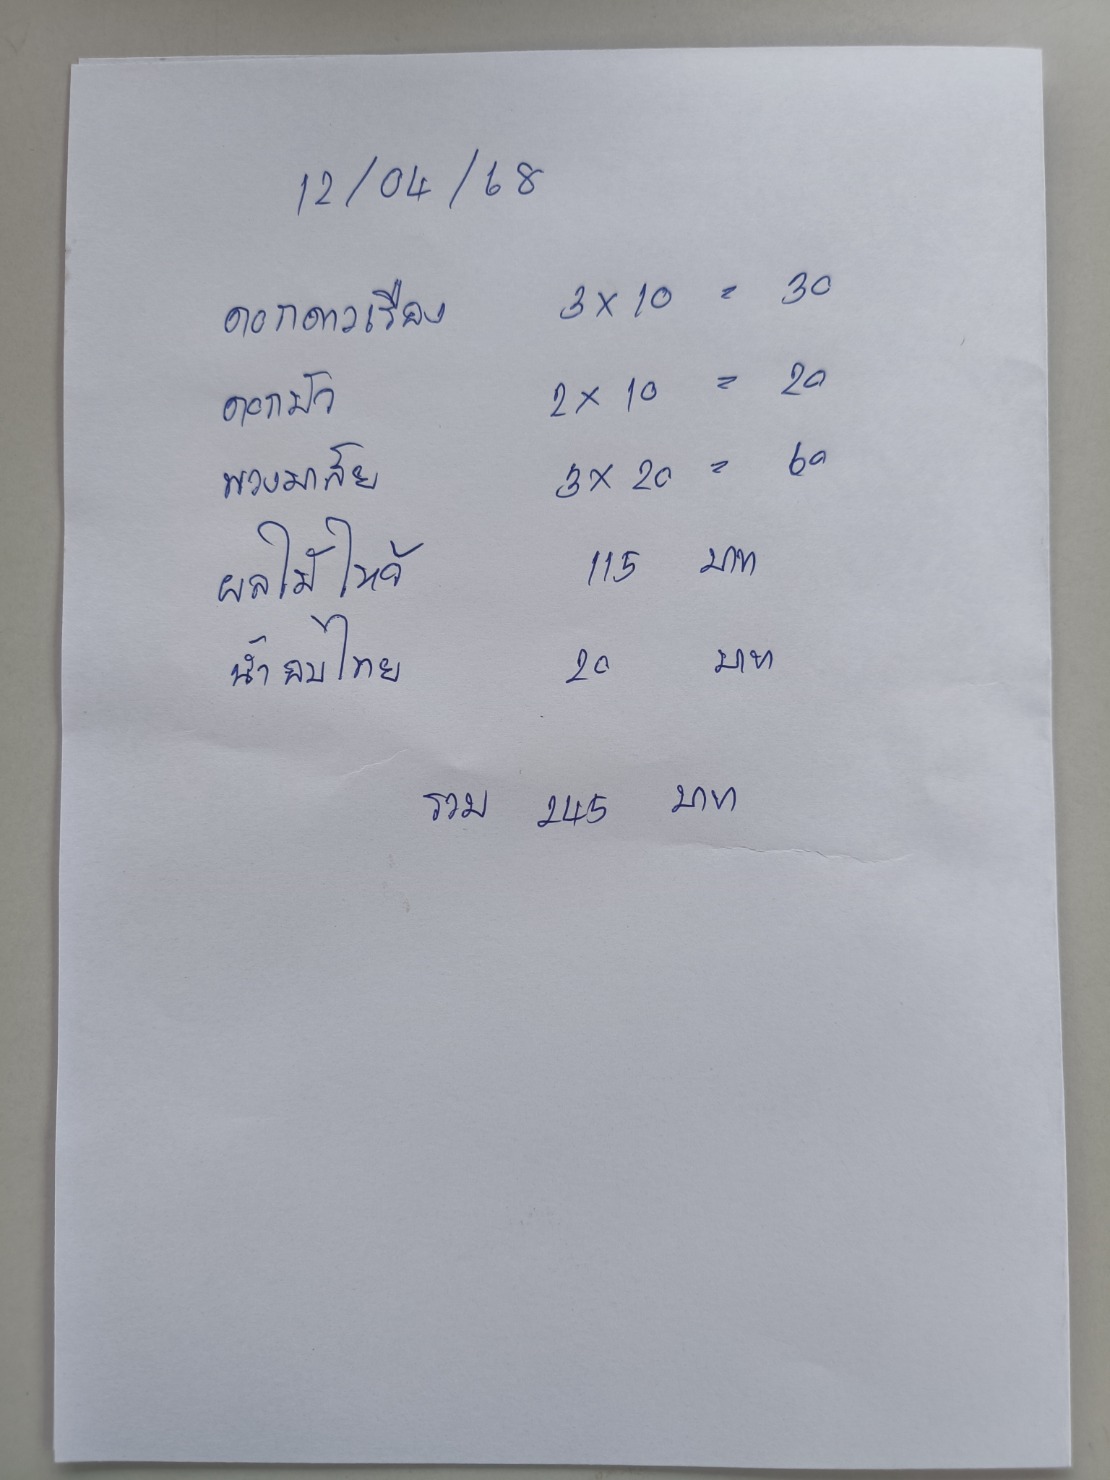 12/04/68
ดอกดาวเรือง 3 x 10 = 30
ดอกบัว 2 x 10 = 20
พวงมาลัย 3 x 20 = 60
ผลไม้ไหว้ 115 บาท
น้ำอบไทย 20 บาท
รวม 245 บาท